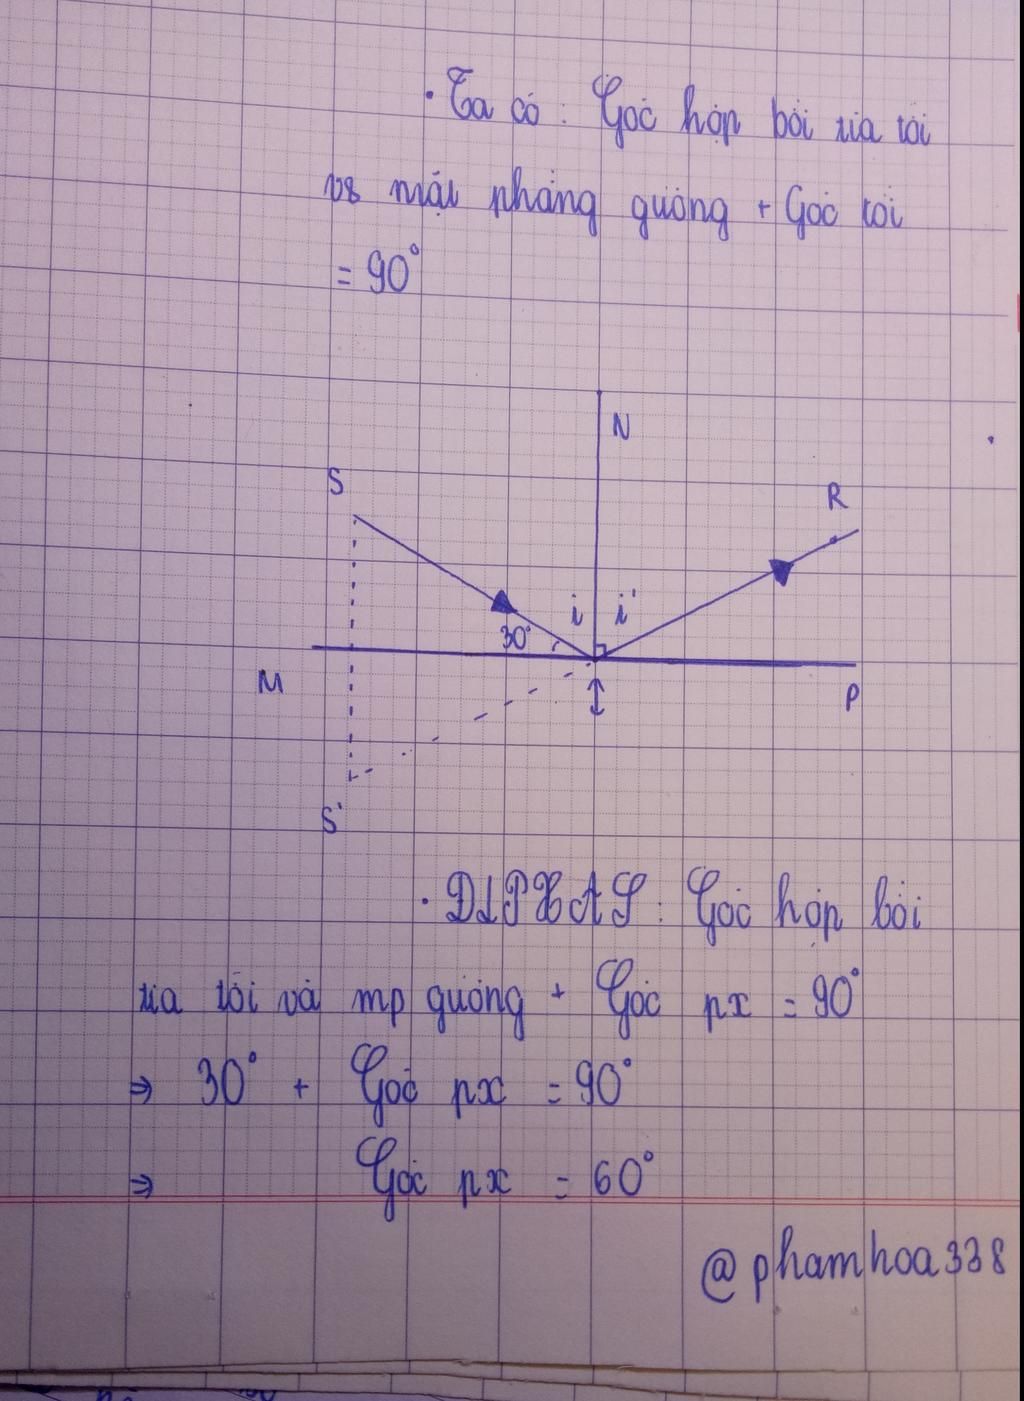 · Ta có : Góc hợp bởi tia tới
vs mặt phẳng gương + Góc tới
= 90°
N
S
R
i i'
30°
M
I
P
S'
· ĐLPXAS : Góc hợp bởi
tia tới và mp gương + Góc px = 90°
⇒ 30° + Góc px = 90°
⇒ Góc px = 60°
@phamhoa338